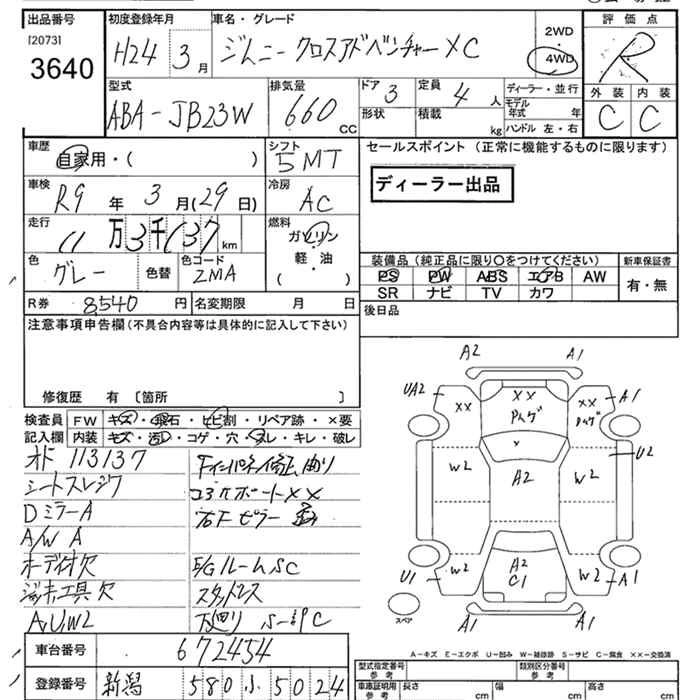 出品番号 初度登録年月 車名・グレード 2WD 評価点
[2073] H24 3月 ジムニー クロスアドベンチャーXC 4WD R
3640
型式 排気量 ドア 3 定員 4人 ディーラー・並行 外装 内装
ABA-JB23W 660 CC 形状 積載 kg モデル年式 年 C C
ハンドル 左・右
車歴 シフト セールスポイント(正常に機能するものに限ります)
自家用・( ) 5MT
車検 冷房 ディーラー出品
R9年 3月(29日) AC
走行 燃料
11万3千137km ガソリン
色 色替 色コード 軽・油
グレー ZMA ( ・ )
装備品(純正品に限り○をつけてください) 新車保証書
PS PW ABS エアB AW 有・無
SR ナビ TV カワ
R券 8540円 名変期限 月 日 後日品
注意事項申告欄(不具合内容等は具体的に記入して下さい)
修復歴 有 [箇所 ]
検査員 FW キズ・飛石・ヒビ割・リペア跡・×要
記入欄 内装 キズ・汚れ・コゲ・穴・スレ・キレ・破レ
オド 113137
シートスレシワ コアサポートXX
DミラーA 右Fピラー
A/W A
オーディオ欠 E/GルームSC
ジャッキ工具欠 スタッドレス
A,U,W2 下廻り S-錆C
車台番号 672454
登録番号 新潟 580 ふ 5024
A2 A1
UA2 XX XX XX A1
W2 A2 W2 U2
U1 W2 A2 C1 W2 A1
スペア A1 A1
A-キズ E-エクボ U-凹み W-補修跡 S-サビ C-腐食 XX-交換済
型式指定番号 参考 類別区分番号 参考
車庫証明用 参考 長さ cm 幅 cm 高さ cm